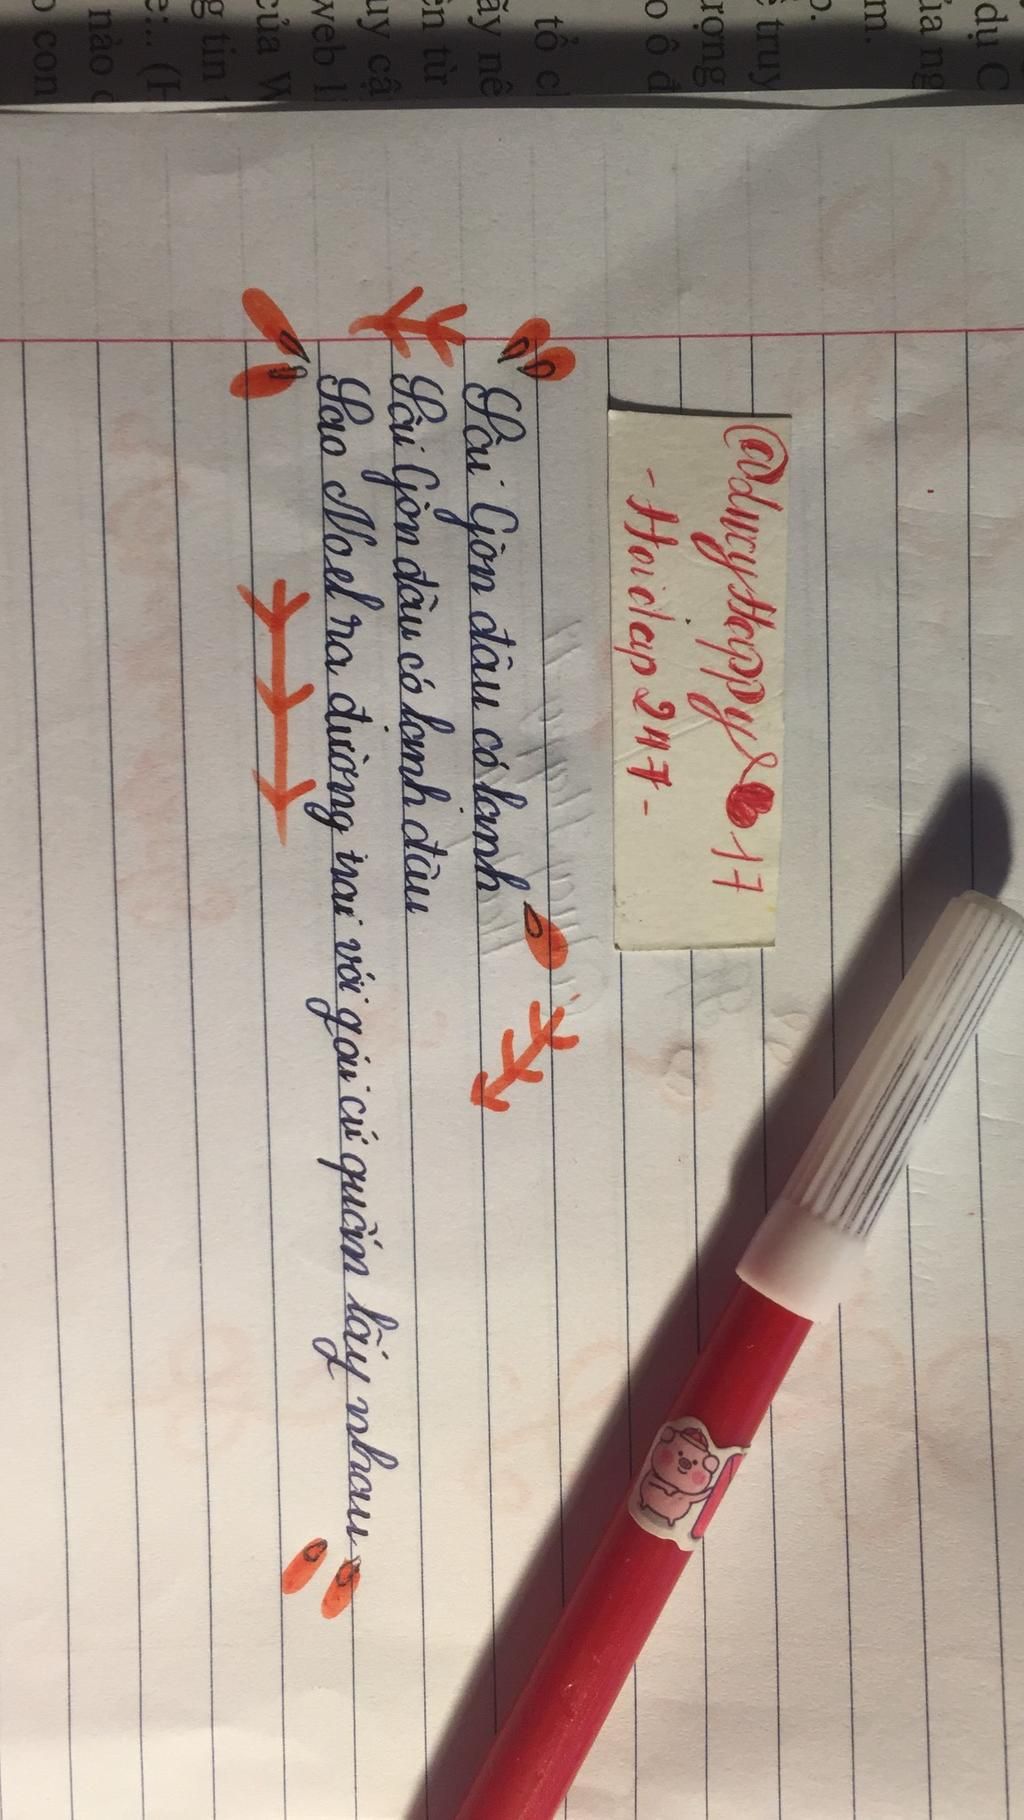 dụ C
ủa ng
m.
p.
truy
rợng
o ô đ
tổ c
ãy nê
ên từ
uy cậ
web l
của W
g tin
e:... (H
nào
o con
17
- Hoidap 247 -
Sài Gòn đâu có lạnh
Sài Gòn đâu có lạnh đâu
Sao Noel ra đường trai với gái cứ quấn lấy nhau